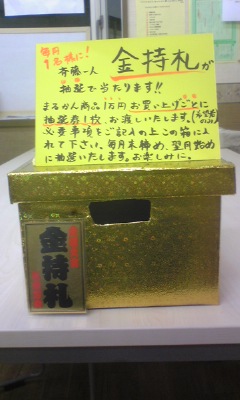 毎月
1名様に!
斉藤一人
金持札が
抽選で当たります!!
まるかん商品1万円お買い上げごとに
抽選券1枚、お渡しいたします。(希望者のみ)
必要事項をご記入の上この箱に入
れて下さい。毎月末締め、翌月始め
に抽選いたします。お楽しみに。
金持札